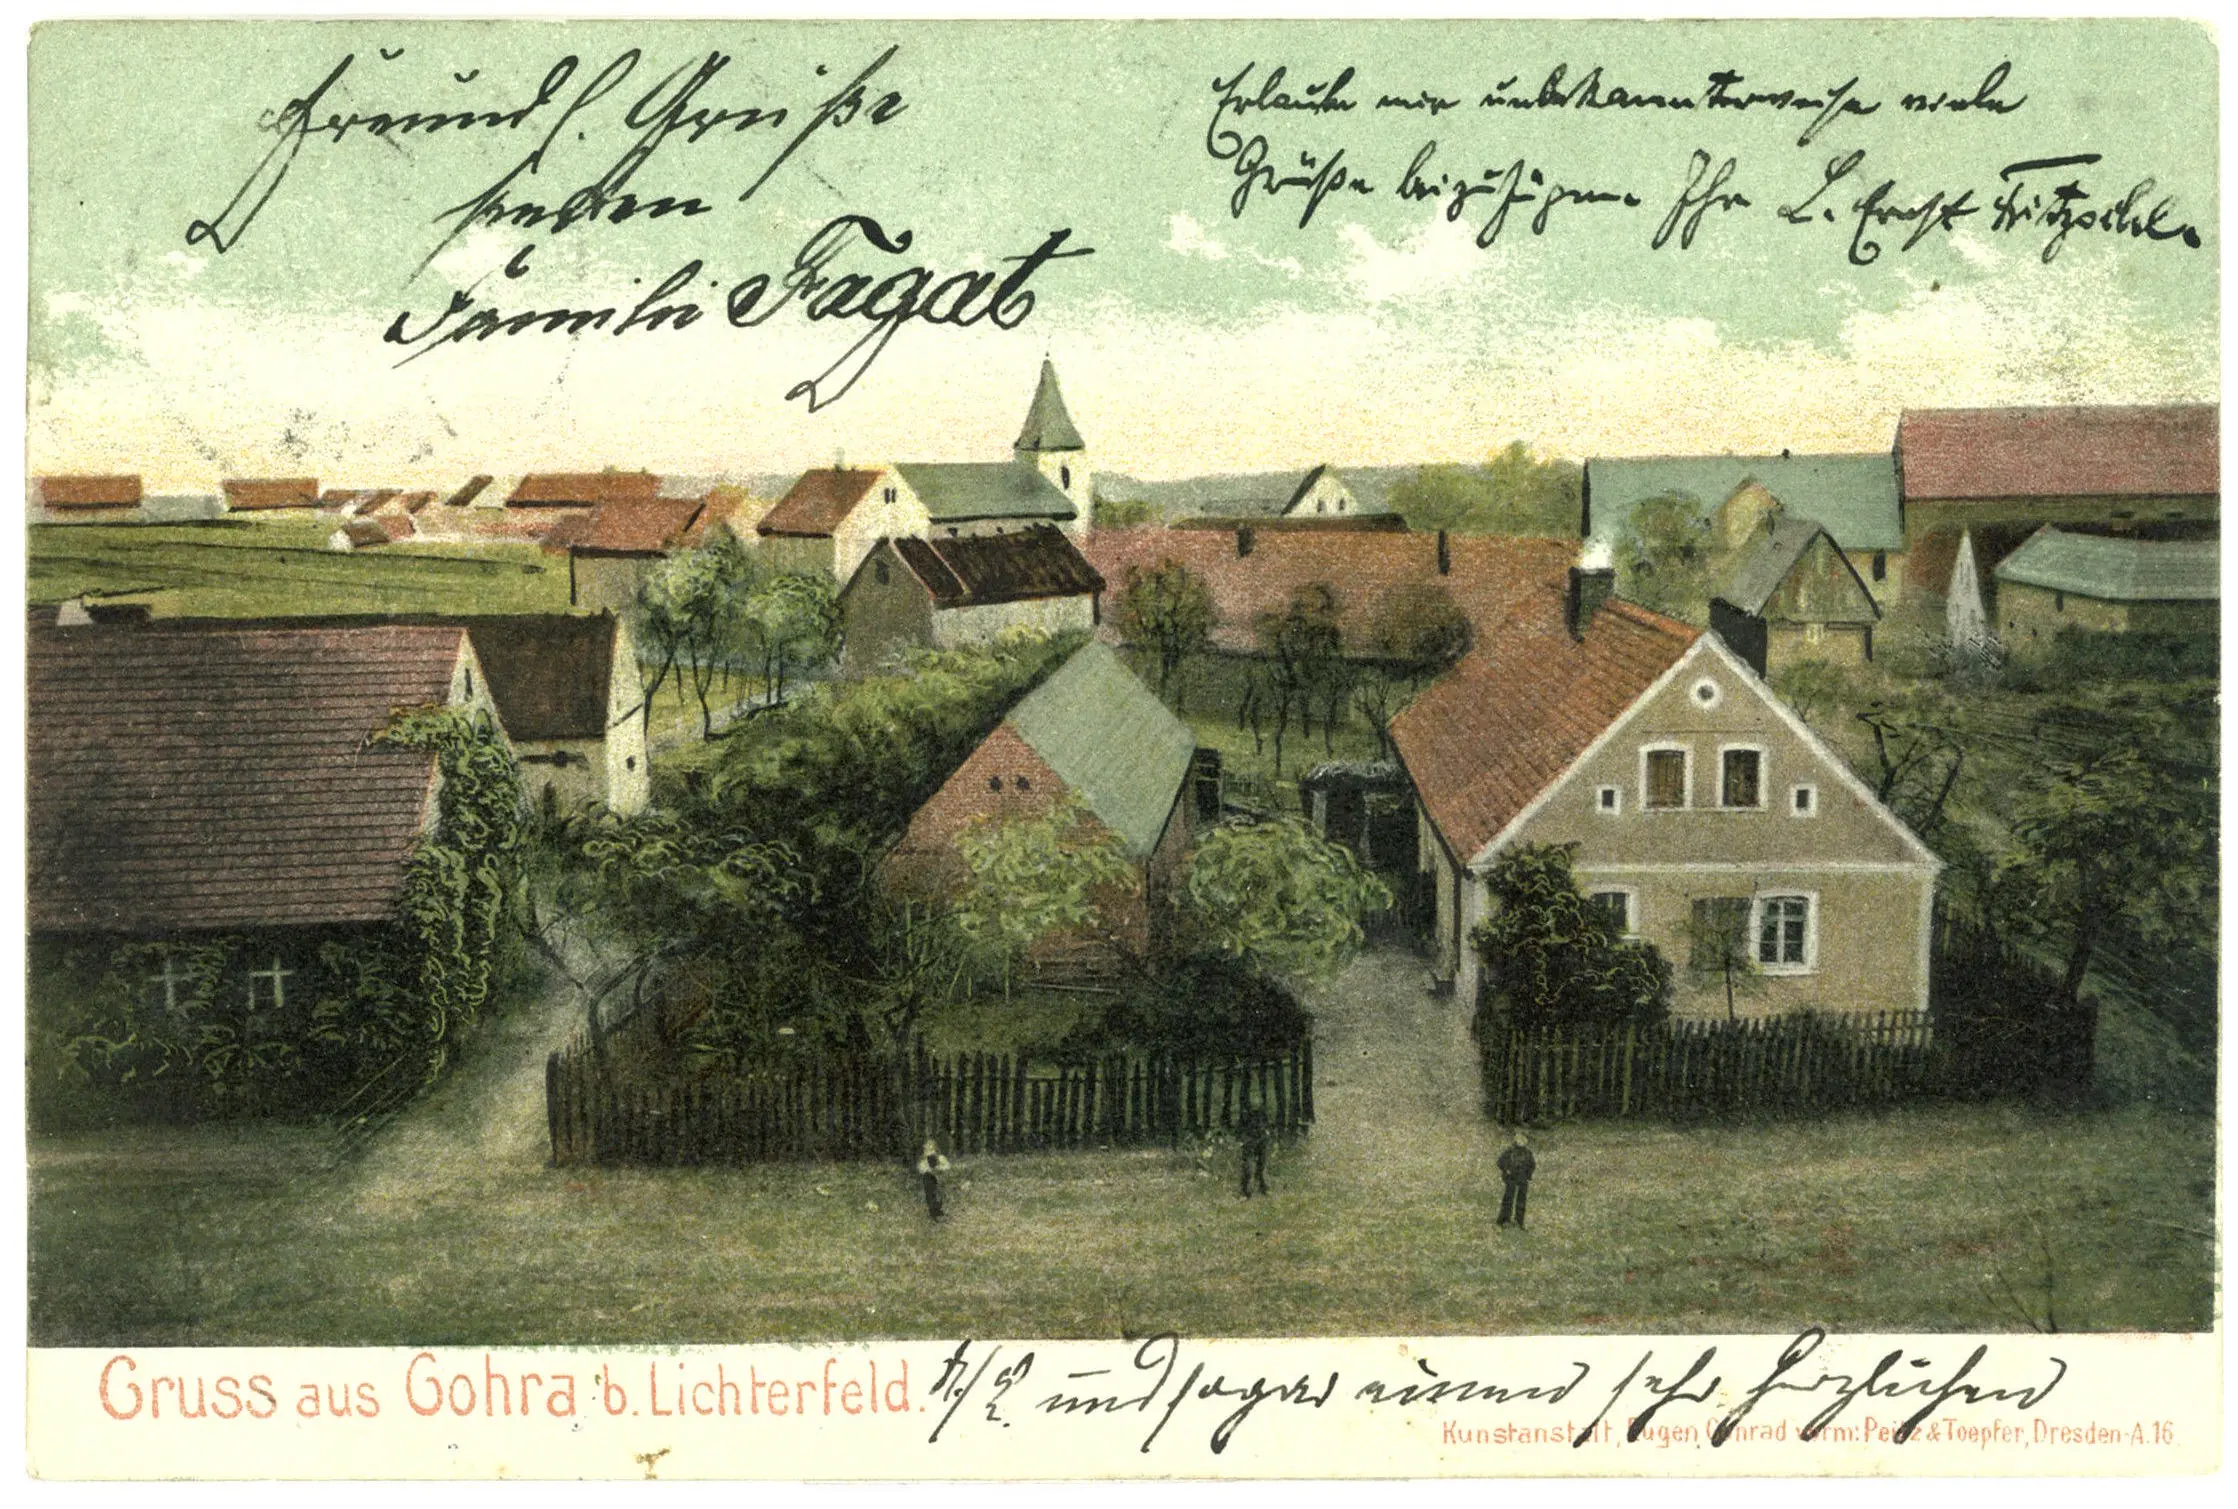 Freundl. Grüße
senden
Familie Fagat
Erlaube mir unbekannterweise viele
Grüße beizufügen. Ihr L. Ernst
Gruss aus Gohra b. Lichterfeld.
und sogar einen sehr herzlichen
Kunstanstalt, Eugen Conrad vorm: Peitz & Toepfer, Dresden-A.16